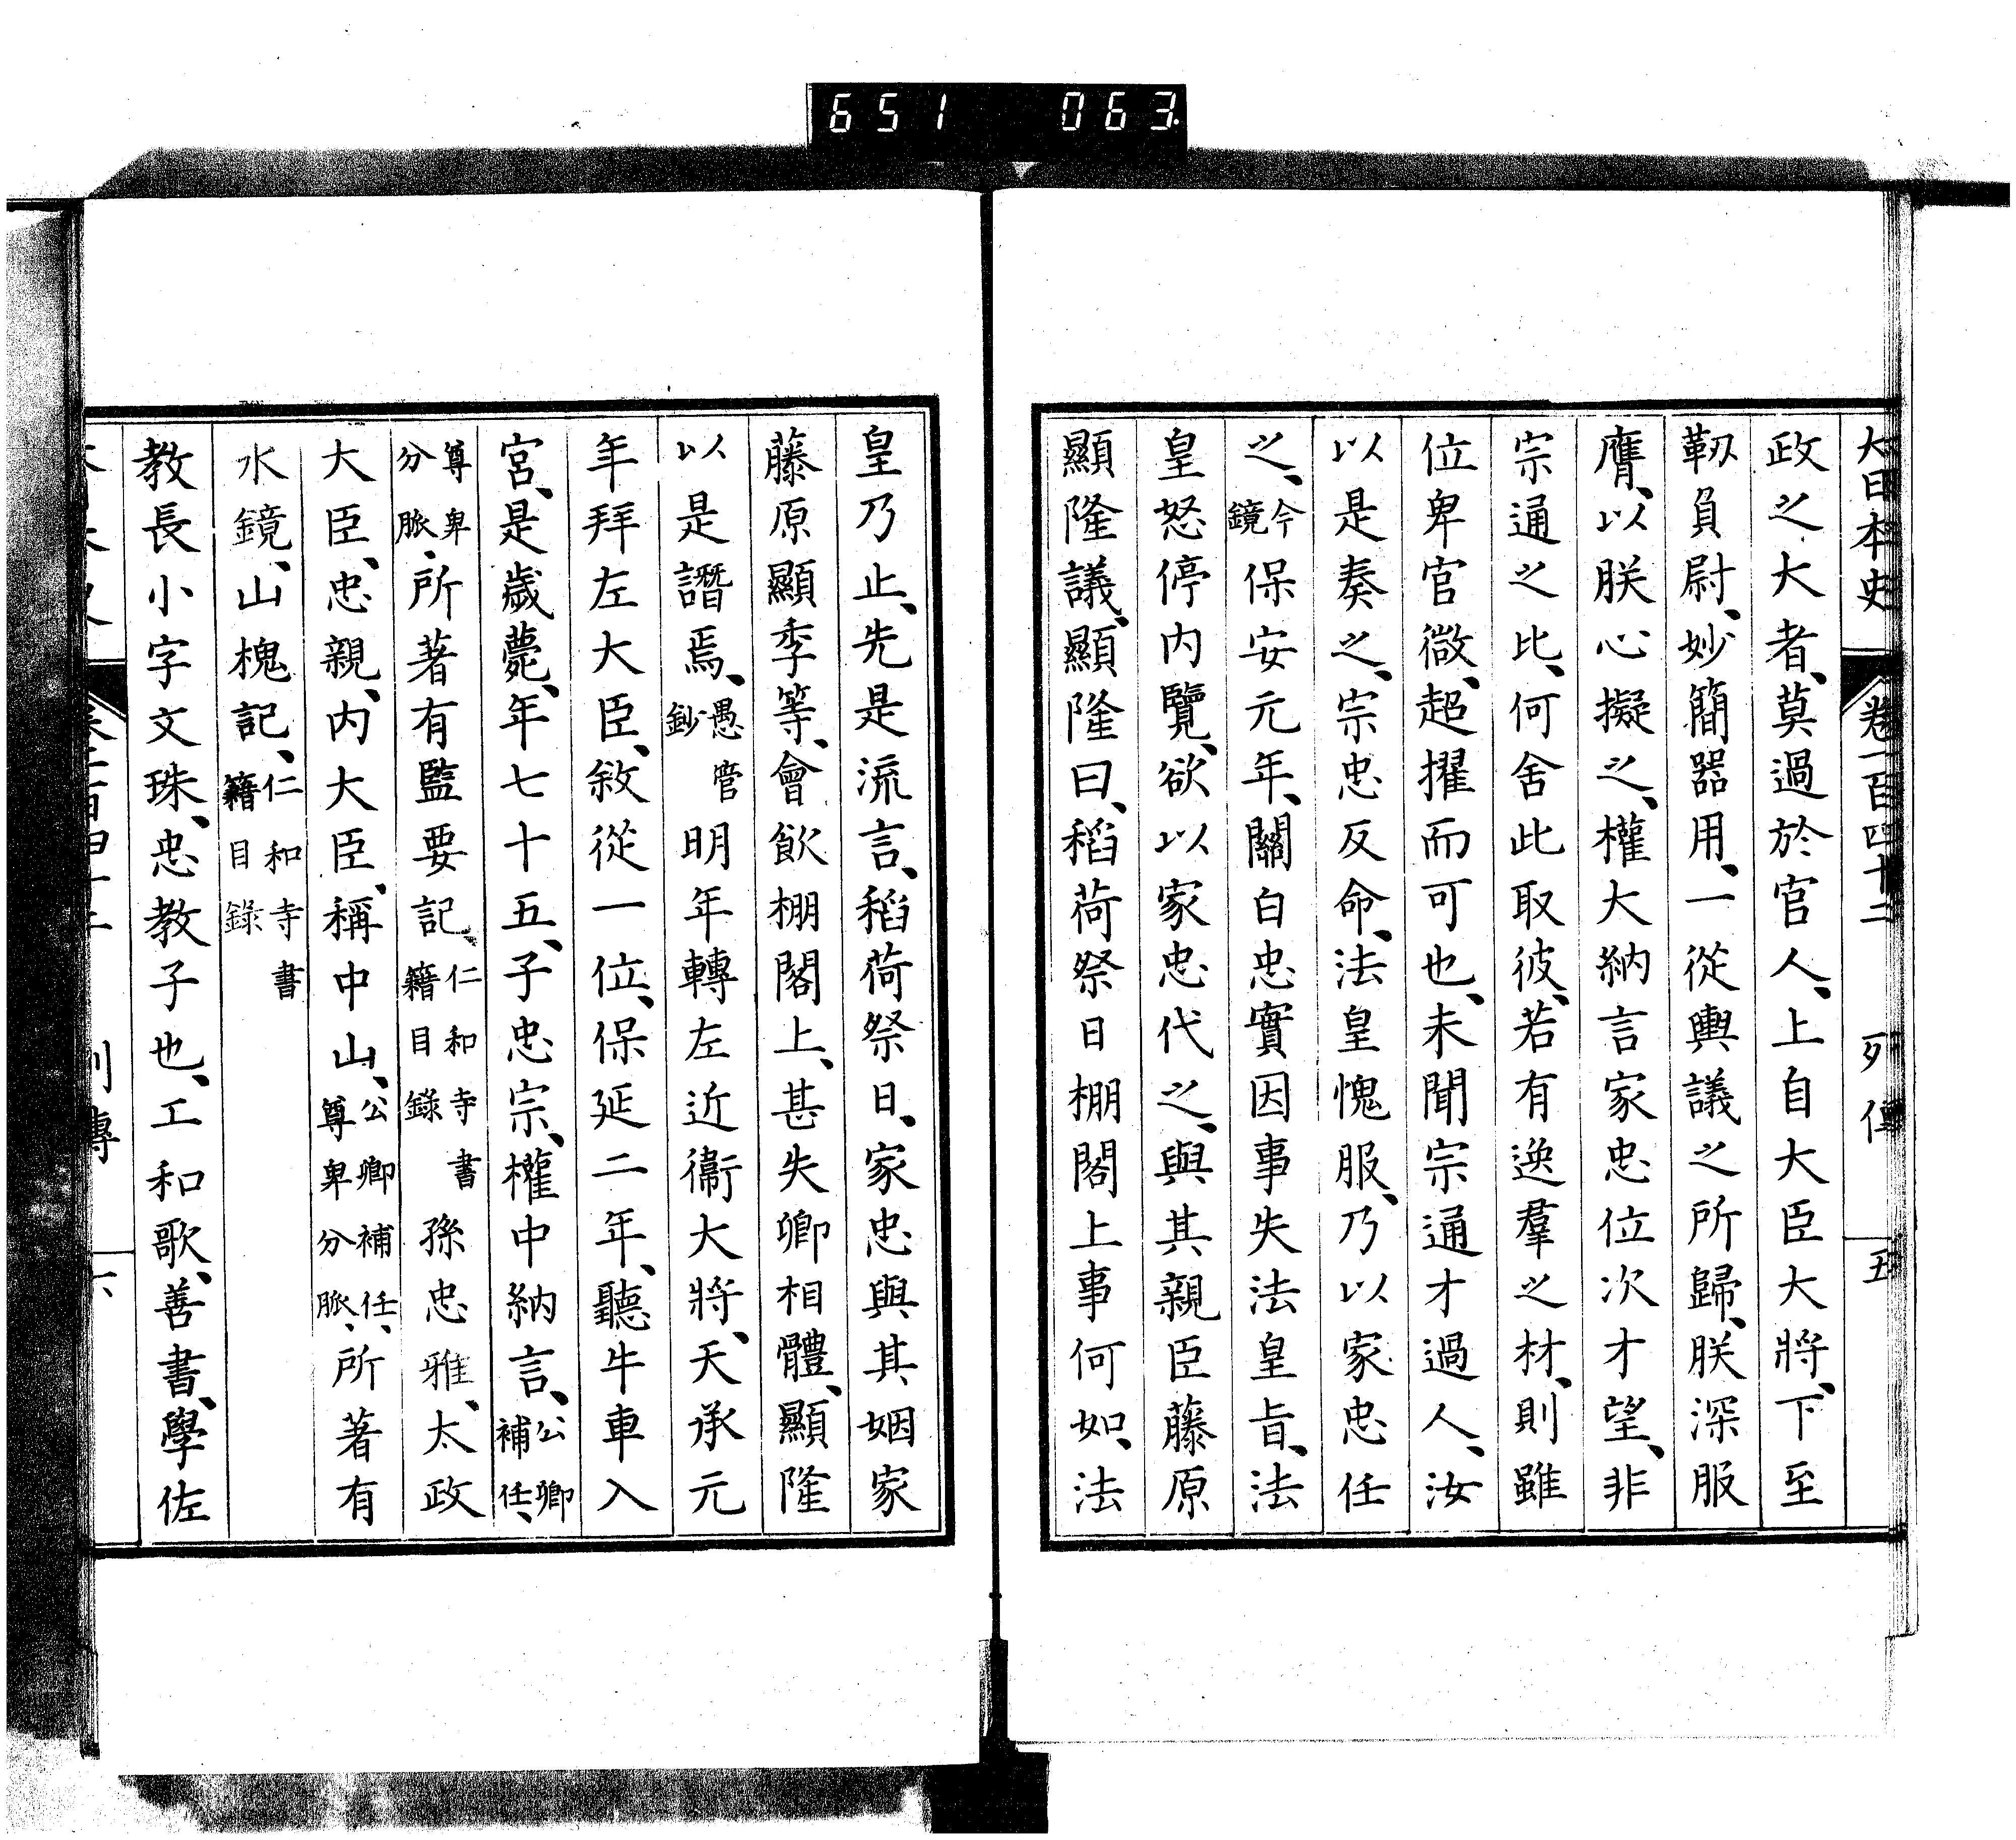 651 063
大日本史 卷一百四十二 列傳 五
政之大者、莫過於官人、上自大臣大將、下至
靱負尉、妙簡器用、一從輿議之所歸、朕深服
膺、以朕心擬之、權大納言家忠位次才望、非
宗通之比、何舍此取彼、若有逸羣之材、則雖
位卑官微、超擢而可也、未聞宗通才過人、汝
以是奏之、宗忠反命、法皇愧服、乃以家忠任
之、今鏡保安元年、關白忠實因事失法皇旨、法
皇怒停内覽、欲以家忠代之、與其親臣藤原
顯隆議、顯隆曰、稻荷祭日棚閣上事何如、法
皇乃止、先是流言、稻荷祭日、家忠與其姻家
藤原顯季等、會飲棚閣上、甚失卿相體、顯隆
以是譖焉、愚管鈔明年轉左近衞大將、天承元
年拜左大臣、敘從一位、保延二年、聽牛車入
宮、是歲薨、年七十五、子忠宗、權中納言、公卿補任、
尊卑分脈、所著有監要記、仁和寺書籍目錄孫忠雅、太政
大臣、忠親、内大臣、稱中山、公卿補任、尊卑分脈、所著有
水鏡、山槐記、仁和寺書籍目錄
教長小字文珠、忠教子也、工和歌、善書、學佐
列傳 六